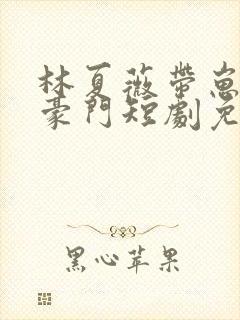 林夏薇帶崽
豪門短劇免
黑心苹果